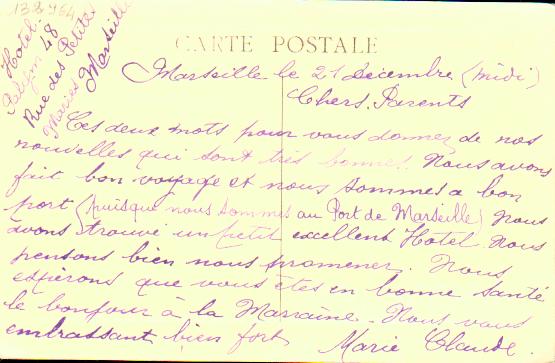 138964
Hotel
48
Rue des Petites
Maries Marseille
CARTE POSTALE
Marseille le 21 décembre (midi)
Chers Parents
Ces deux mots pour vous donnez de nos
nouvelles qui sont très bonnes. Nous avons
fait bon voyage et nous sommes a bon
port (puisque nous sommes au Port de Marseille) Nous
avons trouvé un petit excellent Hotel. Nous
pensons bien nous promener. Nous
espérons que vous êtes en bonne santé
le bonjour à la Marraine. Nous vous
embrassant bien fort Marie Claude